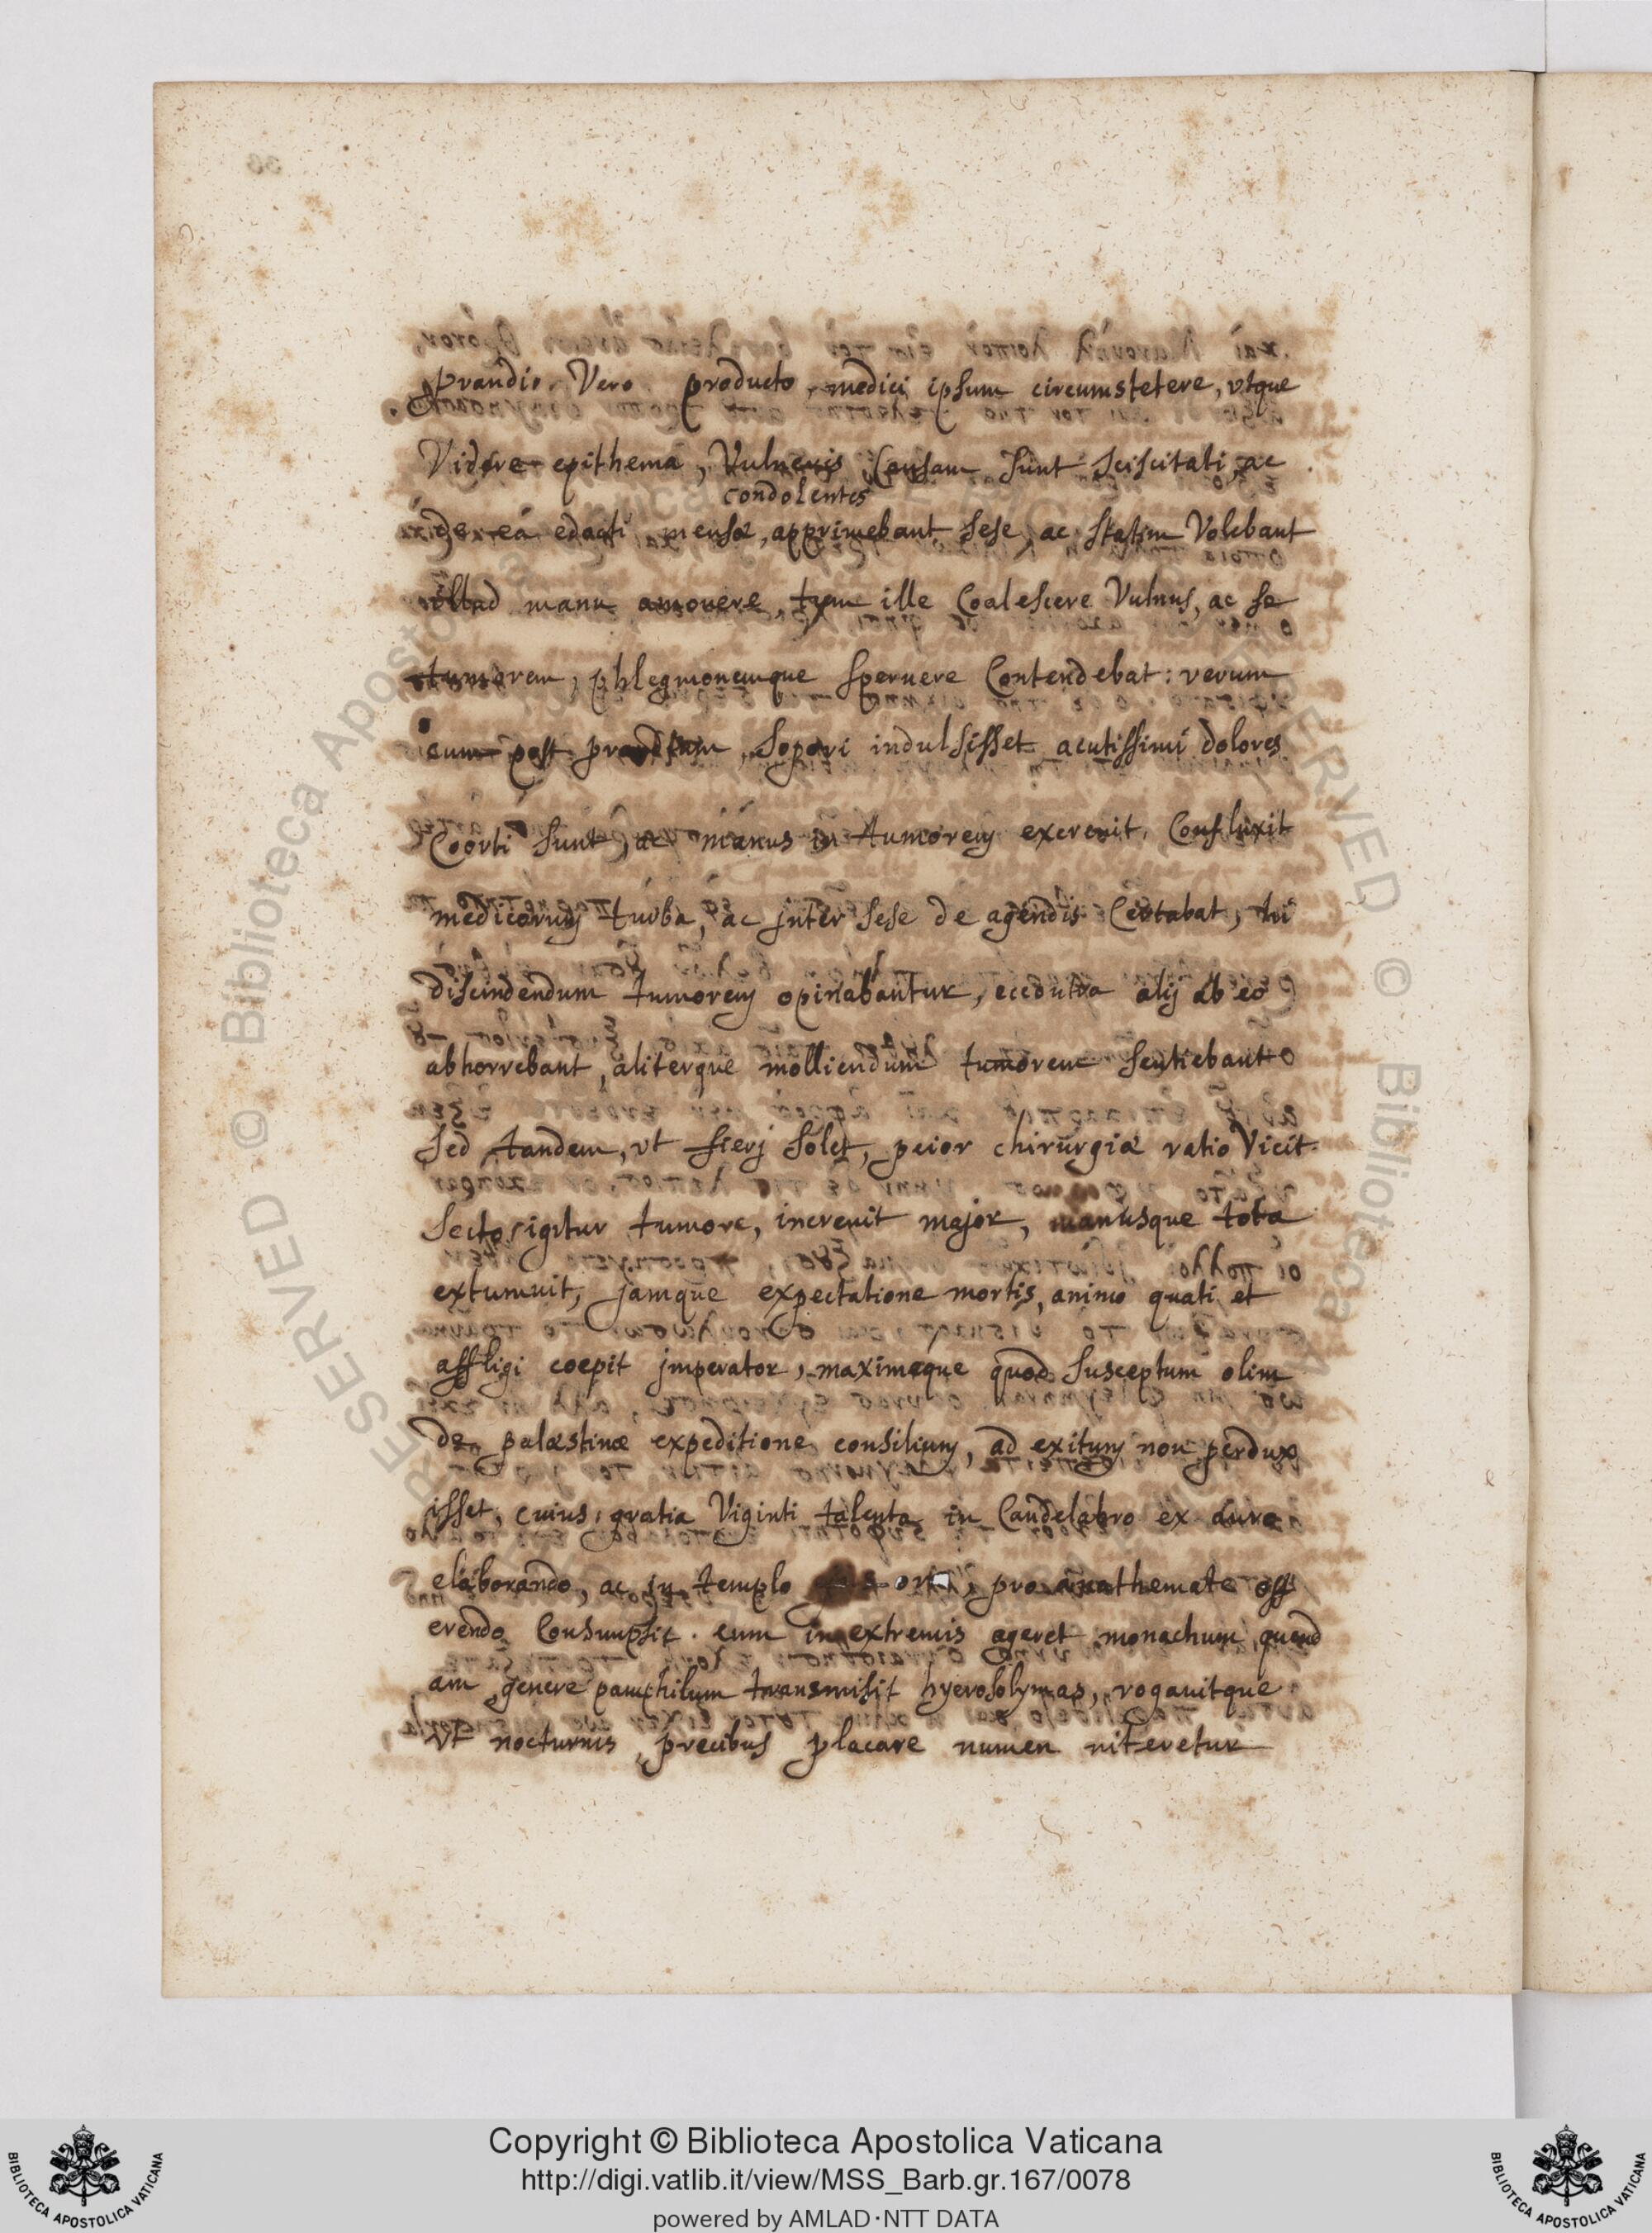 prandio Vero producto, medici ipsum circumstetere, utque
Videre epithema, Vulneris Causam sunt sciscitati, ac
condolentes
de ea edocti mensæ, apprimebant sese, ac statim Volebant
illud manu amouere, tum ille Coalescere Vulnus, ac se
tumorem, phlegmonemque spernere Contendebat: verum
cum post prandium, sopori indulsisset acutissimi dolores
Coorti sunt, ac manus in tumorem excrevit. Confluxit
medicorum turba, ac inter sese de agendis Certabat, hi
discindendum tumorem opinabantur, alij ab eo
abhorrebant, aliterque molliendum tumorem sentiebant
sed tandem, vt fierj solet, peior chirurgiæ ratio Vicit.
secto igitur tumore, increuit major, manusque tota
extumuit, jamque expectatione mortis, animo quati et
affligi coepit jmperator, maximeque quod susceptum olim
de palæstinæ expeditione consilium, ad exitum non perdux
isset, cuius gratia Viginti talenta in Candelabro ex auro
elaborando, ac in templo pro anathemate off
erendo Consumpsit. cum in extremis ageret monachum quend
am genere pamphilum transmisit hyerosolymas, rogauitque
vt nocturnis precibus placare numen niteretur
Copyright © Biblioteca Apostolica Vaticana
http://digi.vatlib.it/view/MSS_Barb.gr.167/0078
powered by AMLAD·NTT DATA